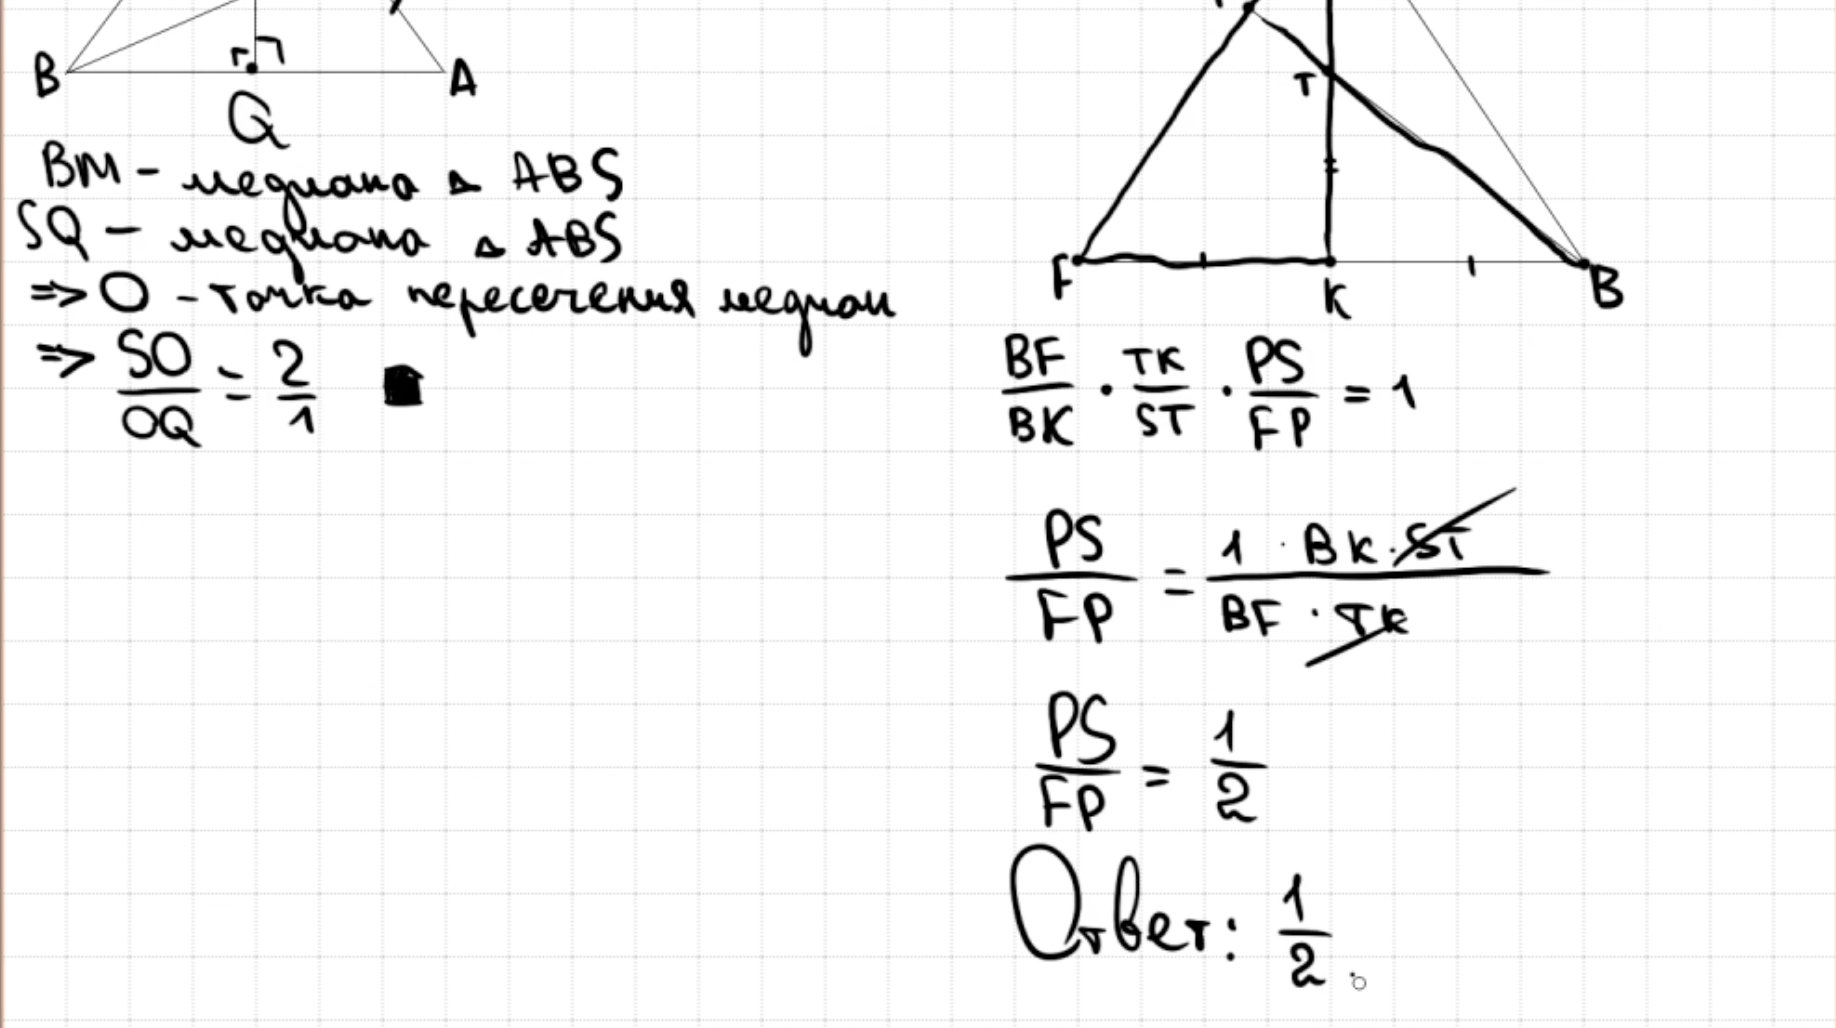 B
A
Q
BM - медиана △ ABS
SQ - медиана △ ABS
=> O - точка пересечения медиан
=> SO/OQ = 2/1 ■
T
F
K
B
BF/BK · TK/ST · PS/FP = 1
PS/FP = 1 · BK · ST / BF · TK
PS/FP = 1/2
Ответ: 1/2.